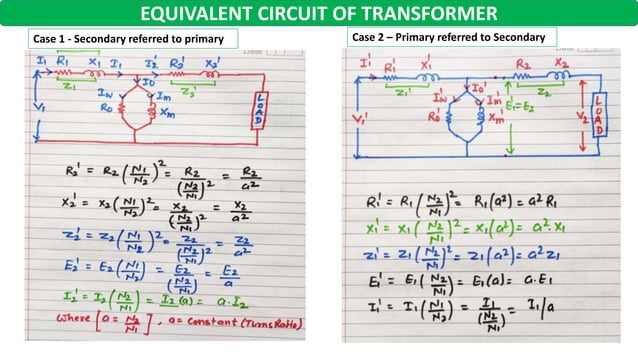 EQUIVALENT CIRCUIT OF TRANSFORMER
Case 1 - Secondary referred to primary
I₁ R₁ X₁ I₁ I₂' R₂' X₂'
Z₁ I₀ Z₂'
V₁ Iw Im
R₀ Xm
LOAD
R₂' = R₂ (N₁/N₂)² = R₂/(N₂/N₁)² = R₂/a²
X₂' = X₂ (N₁/N₂)² = X₂/(N₂/N₁)² = X₂/a²
Z₂' = Z₂ (N₁/N₂)² = Z₂/(N₂/N₁)² = Z₂/a²
E₂' = E₂ (N₁/N₂) = E₂/(N₂/N₁) = E₂/a
I₂' = I₂ (N₂/N₁) = I₂ (a) = a.I₂
Where [a = N₂/N₁], a = constant (Turns Ratio)
Case 2 – Primary referred to Secondary
I₁' R₁' X₁' R₂ X₂
Z₁' I₀' Z₂
V₁' Iw' Im' E₁' = E₂ V₂
R₀' Xm'
LOAD
R₁' = R₁ (N₂/N₁)² = R₁(a²) = a² R₁
X₁' = X₁ (N₂/N₁)² = X₁(a²) = a².X₁
Z₁' = Z₁ (N₂/N₁)² = Z₁(a²) = a² Z₁
E₁' = E₁ (N₂/N₁) = E₁(a) = a.E₁
I₁' = I₁ (N₁/N₂) = I₁/(N₂/N₁) = I₁/a